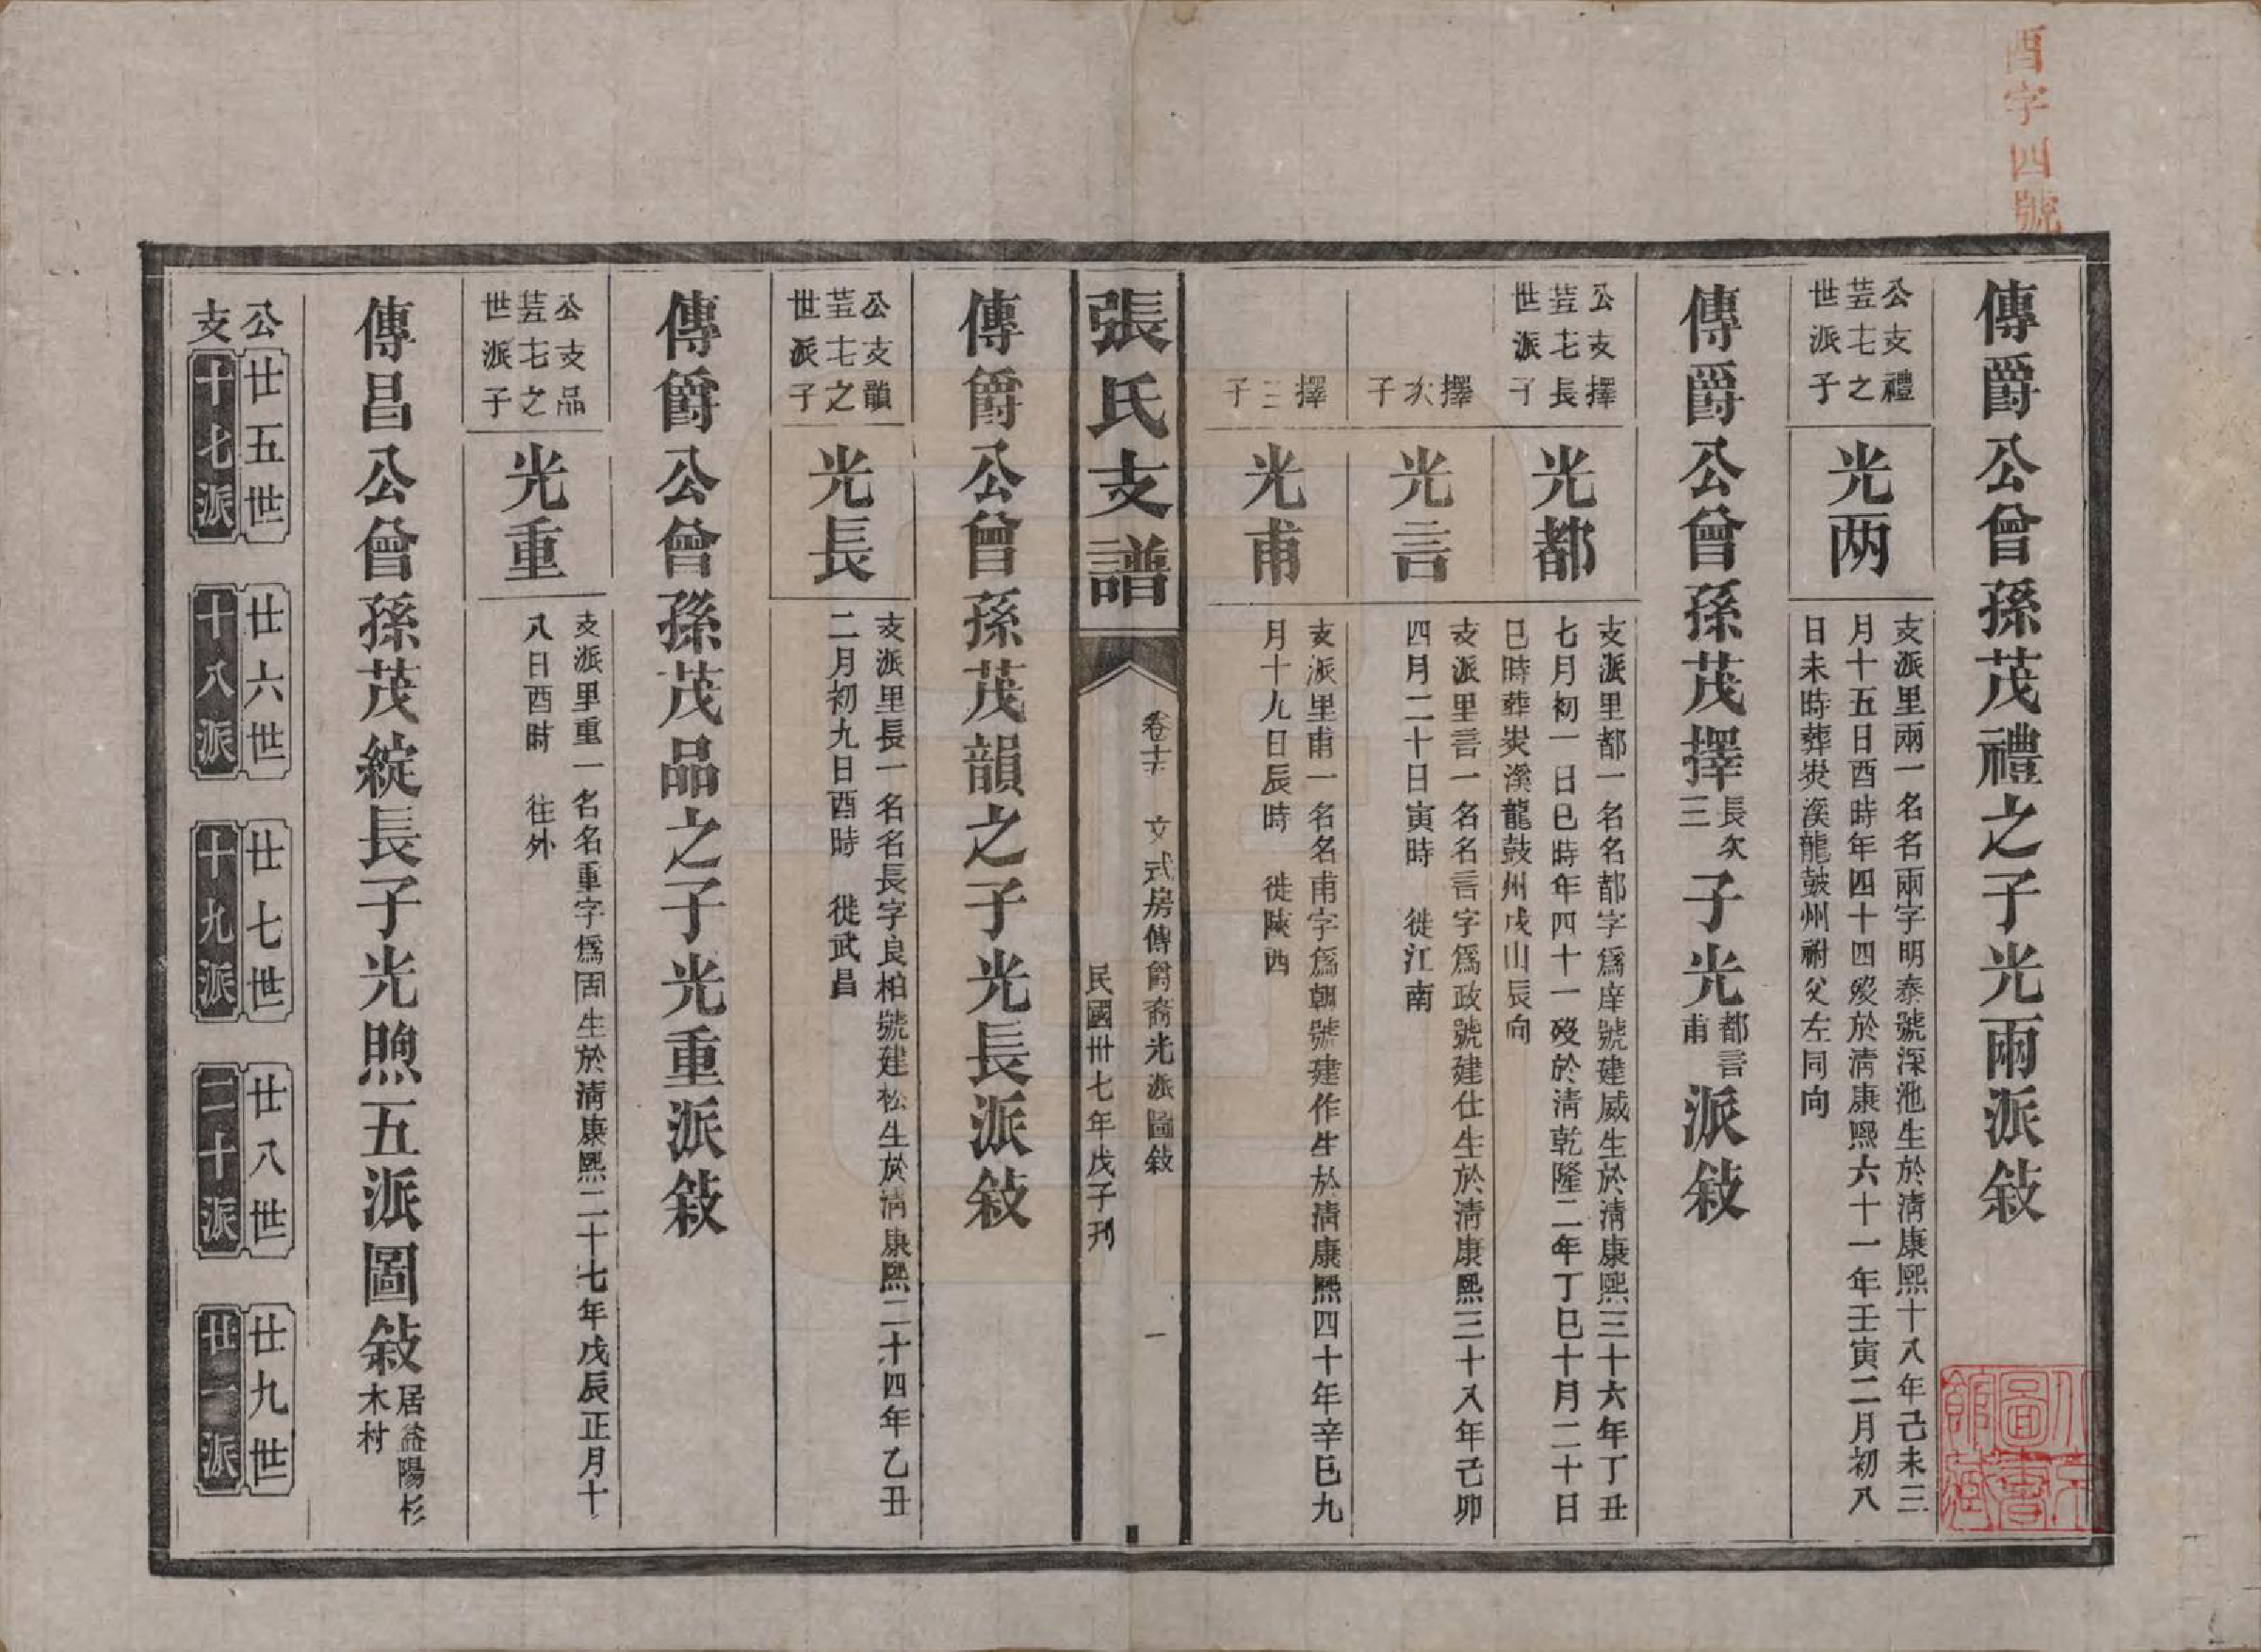 酉字四號
傳爵公曾孫茂禮之子光兩派敍
公支禮
之
世派子
光兩
支派里兩一名名兩字明泰號深池生於淸康熙十八年己未三
月十五日酉時年四十四歿於淸康熙六十一年壬寅二月初八
日未時葬炭溪龍鼓州祔父左同向
傳爵公曾孫茂擇長次三子光都言甫派敍
公支擇
長
世派子
光都
支派里都一名名都字爲庠號建威生於淸康熙三十六年丁丑
七月初一日巳時年四十一歿於淸乾隆二年丁巳十月二十日
巳時葬炭溪龍鼓州戌山辰向
擇次子
光言
支派里言一名名言字爲政號建仕生於淸康熙三十八年己卯
四月二十日寅時 徙江南
擇三子
光甫
支派里甫一名名甫字爲朝號建作生於淸康熙四十年辛巳九
月十九日辰時 徙陝西
張氏支譜
卷 文式房傳爵裔光派圖敍 一
民國卅七年戊子刊
傳爵公曾孫茂韻之子光長派敍
公支韻
之
世派子
光長
支派里長一名名長字良柏號建松生於淸康熙二十四年乙丑
二月初九日酉時 徙武昌
傳爵公曾孫茂品之子光重派敍
公支品
之
世派子
光重
支派里重一名名重字爲固生於淸康熙二十七年戊辰正月十
八日酉時 往外
傳昌公曾孫茂綻長子光煦五派圖敍居益陽杉木村
公 廿五世 廿六世 廿七世 廿八世 廿九世
支 十七派 十八派 十九派 二十派 廿一派